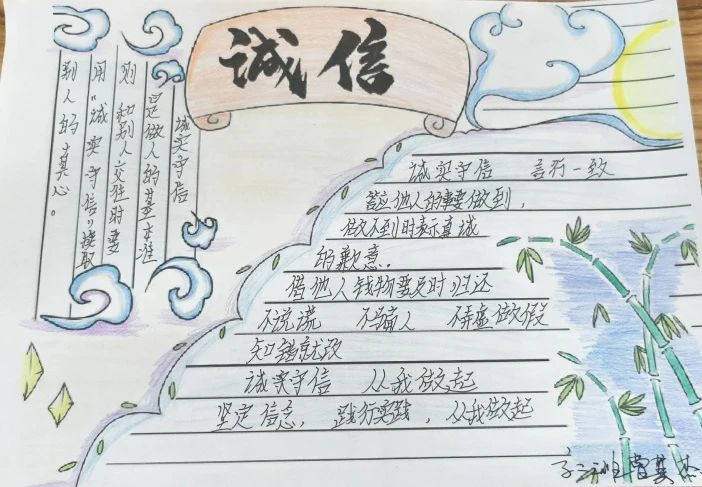 诚信
诚实守信
是做人的基本准
则 和别人交往时要
用“诚实守信”换取
别人的真心。
诚实守信 言行一致
答应他人的事要做到，
做不到时表示真诚
的歉意.
借他人钱物要及时归还
不说谎 不骗人 不弄虚做假
知错就改
诚实守信 从我做起
坚定信念，践行实践，从我做起